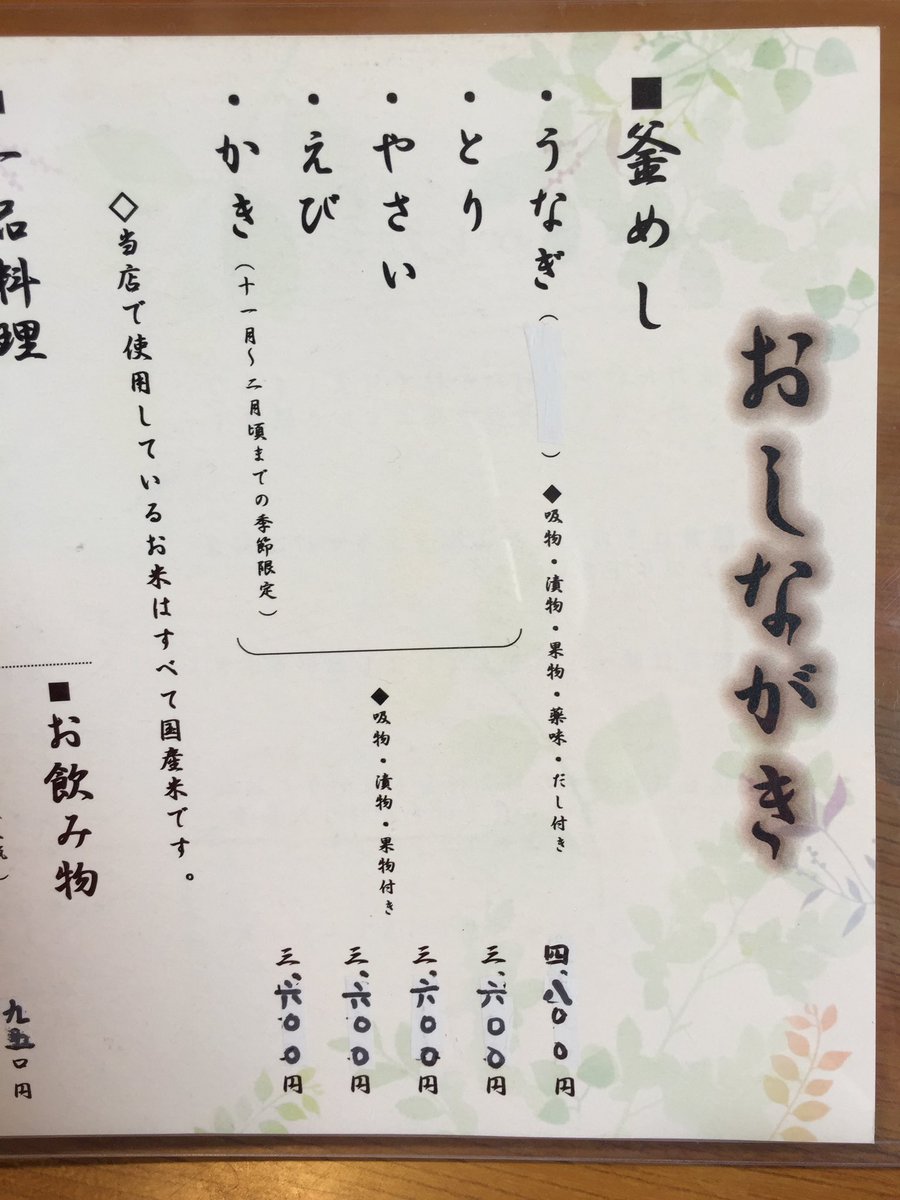 おしながき
■釜めし
・うなぎ（　　）◆吸物・漬物・果物・薬味・だし付き 四、八〇〇円
・とり 三、六〇〇円
・やさい 三、六〇〇円
・えび 三、六〇〇円
・かき（十一月〜二月頃までの季節限定） 三、六〇〇円
◆吸物・漬物・果物付き
◇当店で使用しているお米はすべて国産米です。
■お飲み物
九五〇円
一品料理